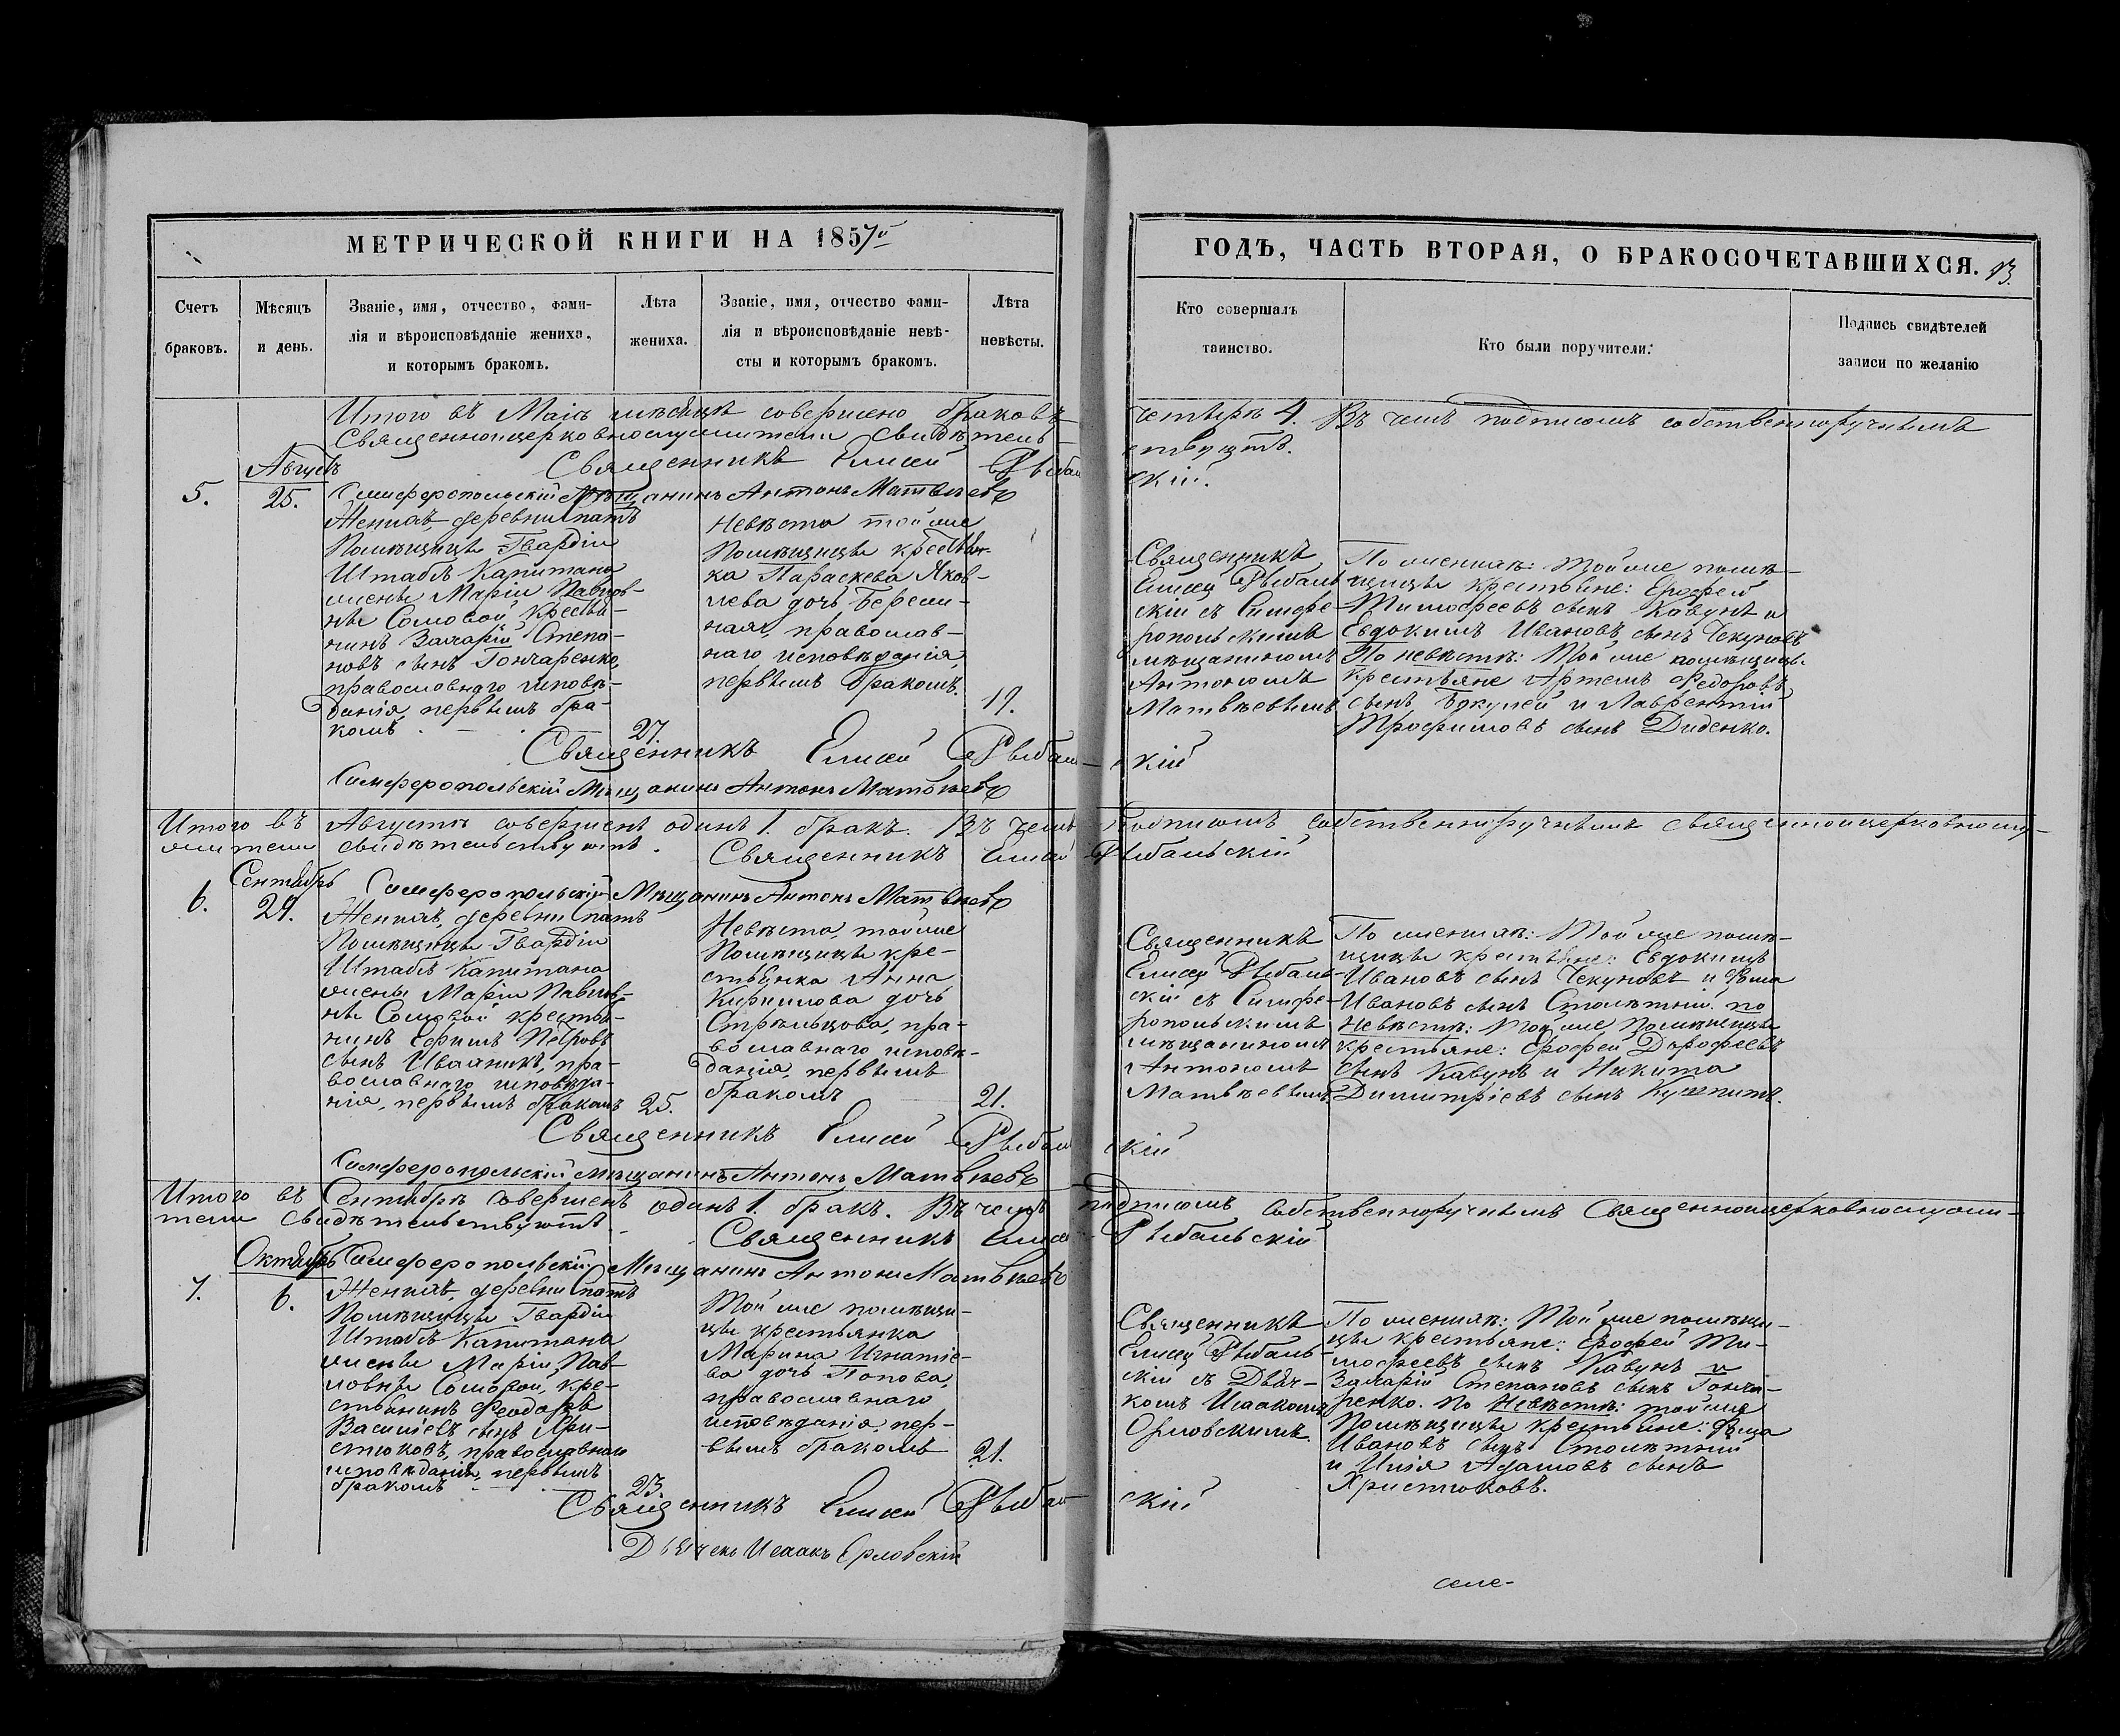 МЕТРИЧЕСКОЙ КНИГИ НА 1857й
ГОДЪ, ЧАСТЬ ВТОРАЯ, О БРАКОСОЧЕТАВШИХСЯ. 13.
Счетъ
браковъ.
Мѣсяцъ
и день.
Званіе, имя, отчество, фами-
лія и вѣроисповѣданіе жениха,
и которымъ бракомъ.
Лѣта
жениха.
Званіе, имя, отчество фами-
лія и вѣроисповѣданіе невѣ-
сты и которымъ бракомъ.
Лѣта
невѣсты.
Кто совершалъ
таинство.
Кто были поручители:
Подпись свидѣтелей
записи по желанію
Итого въ Маіѣ мѣсяцѣ совершено браковъ четыре 4. Въ чемъ подписомъ собственноручнымъ
Священноцерковнослужители свидѣтель-
ствуютъ.
Священникъ Елисей Рыбальскій.
Симферопольскій Мѣщанинъ Антонъ Матвѣевъ
5.
Августъ
25.
Женихъ, деревни Спатъ
Помѣщицы Гвардіи
Штабъ Капитана
жены Маріи Павлов-
ны Сомовой, крестья-
нинъ Захарій Степа-
новъ сынъ Гончаренко,
православнаго исповѣ-
данія, первымъ бра-
комъ
27.
Невѣста той же
Помѣщицы крестьян-
ка Параскева Яков-
лева дочь Береж-
ная, православ-
наго исповѣданія,
первымъ бракомъ.
17.
Священникъ
Елисей Рыбаль-
скій съ Симфе-
ропольскимъ
мѣщаниномъ
Антономъ
Матвѣевымъ
По женихѣ: Той же помѣ-
щицы крестьяне: Ерофей
Тимофеевъ сынъ Кавунъ и
Евдокимъ Ивановъ сынъ Чекуновъ
По невѣстѣ: Той же помѣщицы
крестьяне Артемъ Федоровъ
сынъ и Лаврентій
Трофимовъ сынъ Диденко.
Священникъ Елисей Рыбальскій
Симферопольскій Мѣщанинъ Антонъ Матвѣевъ
Итого въ Августѣ совершенъ одинъ 1. бракъ. Въ чемъ подписомъ собственноручнымъ священноцерковнослу-
жители свидѣтельствуютъ. Священникъ Елисей Рыбальскій
Симферопольскій Мѣщанинъ Антонъ Матвѣевъ
6.
Сентябрь
29.
Женихъ, деревни Спатъ
Помѣщицы Гвардіи
Штабъ Капитана
жены Маріи Павлов-
ны Сомовой крестья-
нинъ Ефимъ Петровъ
сынъ Иваникъ, пра-
вославнаго исповѣда-
нія, первымъ бракомъ
25.
Невѣста, той же
Помѣщицы кре-
стьянка Анна
Кирилова дочь
Стрѣльцова, пра-
вославнаго исповѣ-
данія, первымъ
бракомъ
21.
Священникъ
Елисей Рыбаль-
скій съ Симфе-
ропольскимъ
мѣщаниномъ
Антономъ
Матвѣевымъ.
По женихѣ: Той же помѣ-
щицы крестьяне: Евдокимъ
Ивановъ сынъ Чекуновъ и Фома
Ивановъ сынъ Столѣтній. по
Невѣстѣ: Той же Помѣщицы
крестьяне: Ерофей Дорофеевъ
сынъ Кавунъ и Никита
Димитріевъ сынъ
Священникъ Елисей Рыбальскій
Симферопольскій Мѣщанинъ Антонъ Матвѣевъ
Итого въ Сентябрѣ совершенъ одинъ 1. бракъ. Въ чемъ подписомъ собственноручнымъ Священноцерковнослужи-
тели свидѣтельствуютъ. Священникъ Елисей Рыбальскій
Симферопольскій Мѣщанинъ Антонъ Матвѣевъ
7.
Октябрь
6.
Женихъ, деревни Спатъ
Помѣщицы Гвардіи
Штабъ Капитана
жены Маріи Пав-
ловны Сомовой, кре-
стьянинъ Феодоръ
Васильевъ сынъ Хри-
стюковъ, православнаго
исповѣданія, первымъ
бракомъ
23.
Той же помѣщи-
цы крестьянка
Марина Игнатіе-
ва дочь Попова,
православнаго
исповѣданія, пер-
вымъ бракомъ
21.
Священникъ
Елисей Рыбаль-
скій съ Дьяч-
комъ Исаакомъ
Орловскимъ.
По женихѣ: Той же помѣщи-
цы крестьяне: Ерофей Ти-
мофеевъ сынъ Кавунъ и
Захарій Степановъ сынъ Гонча-
ренко. По Невѣстѣ: той же
Помѣщицы крестьяне: Фома
Ивановъ сынъ Столѣтній
и Илія Адамовъ сынъ
Христюковъ.
Священникъ Елисей Рыбальскій
Дьячекъ Исаакъ Орловскій